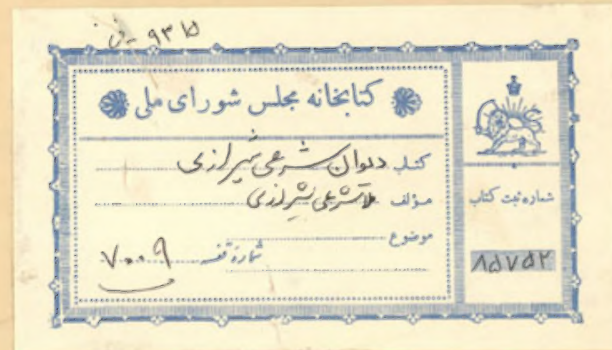 ف - ۹۳۱۵
کتابخانه مجلس شورای ملی
کتاب دیوان شرعی شیرازی
مؤلف ملا شرعی شیرازی
موضوع
شماره قفسه ۷۰۰۹
شماره ثبت کتاب
۸۵۷۵۲